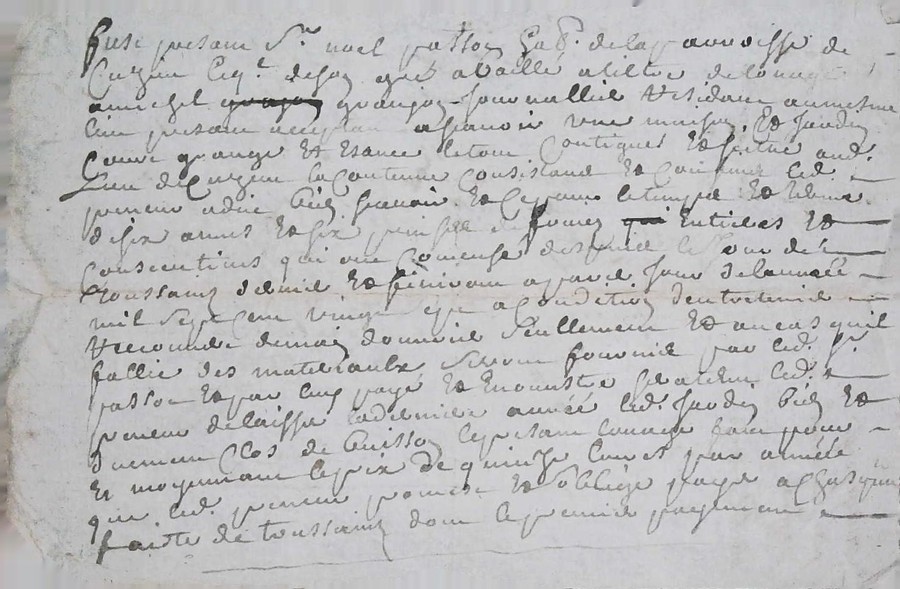 fust present Sr noel passot de la parroisse de
lequel de son gré a baillé a tiltre de louage
a michel granjon Journallier residant au mesme
lieu present acceptan a scavoir une maison Et Jardin
Cour grange Et Estancs le tout Contigues Et scitue aud.
Lieu de la Contenue Consistance Et Confins led.
preneur a dit bien scavoir Et Ce pour le temps Et terme
de six années Et six prinses entieres Et
Consecutives qui ont Comensé des le Jour de
Toussaintz dernier Et finiront a pareil Jour de lannée
mil Sept Cent vingt a Condition dentretenir
recouvert de main douvrier Seullement Et au cas quil
fallie des materiaulx Seront fournir par led. Sr
passot Et par luy paye Et Encourstre sera tenu led.
preneur de laisser la derniere année led. Jardin bien Et
deuement Clos de buisson le present louage fait pour
Et moyennant le prix de quinze livres par année
que led. preneur promest Et soblige payer a Chasqune
faiste de toussaintz dont le premier payement